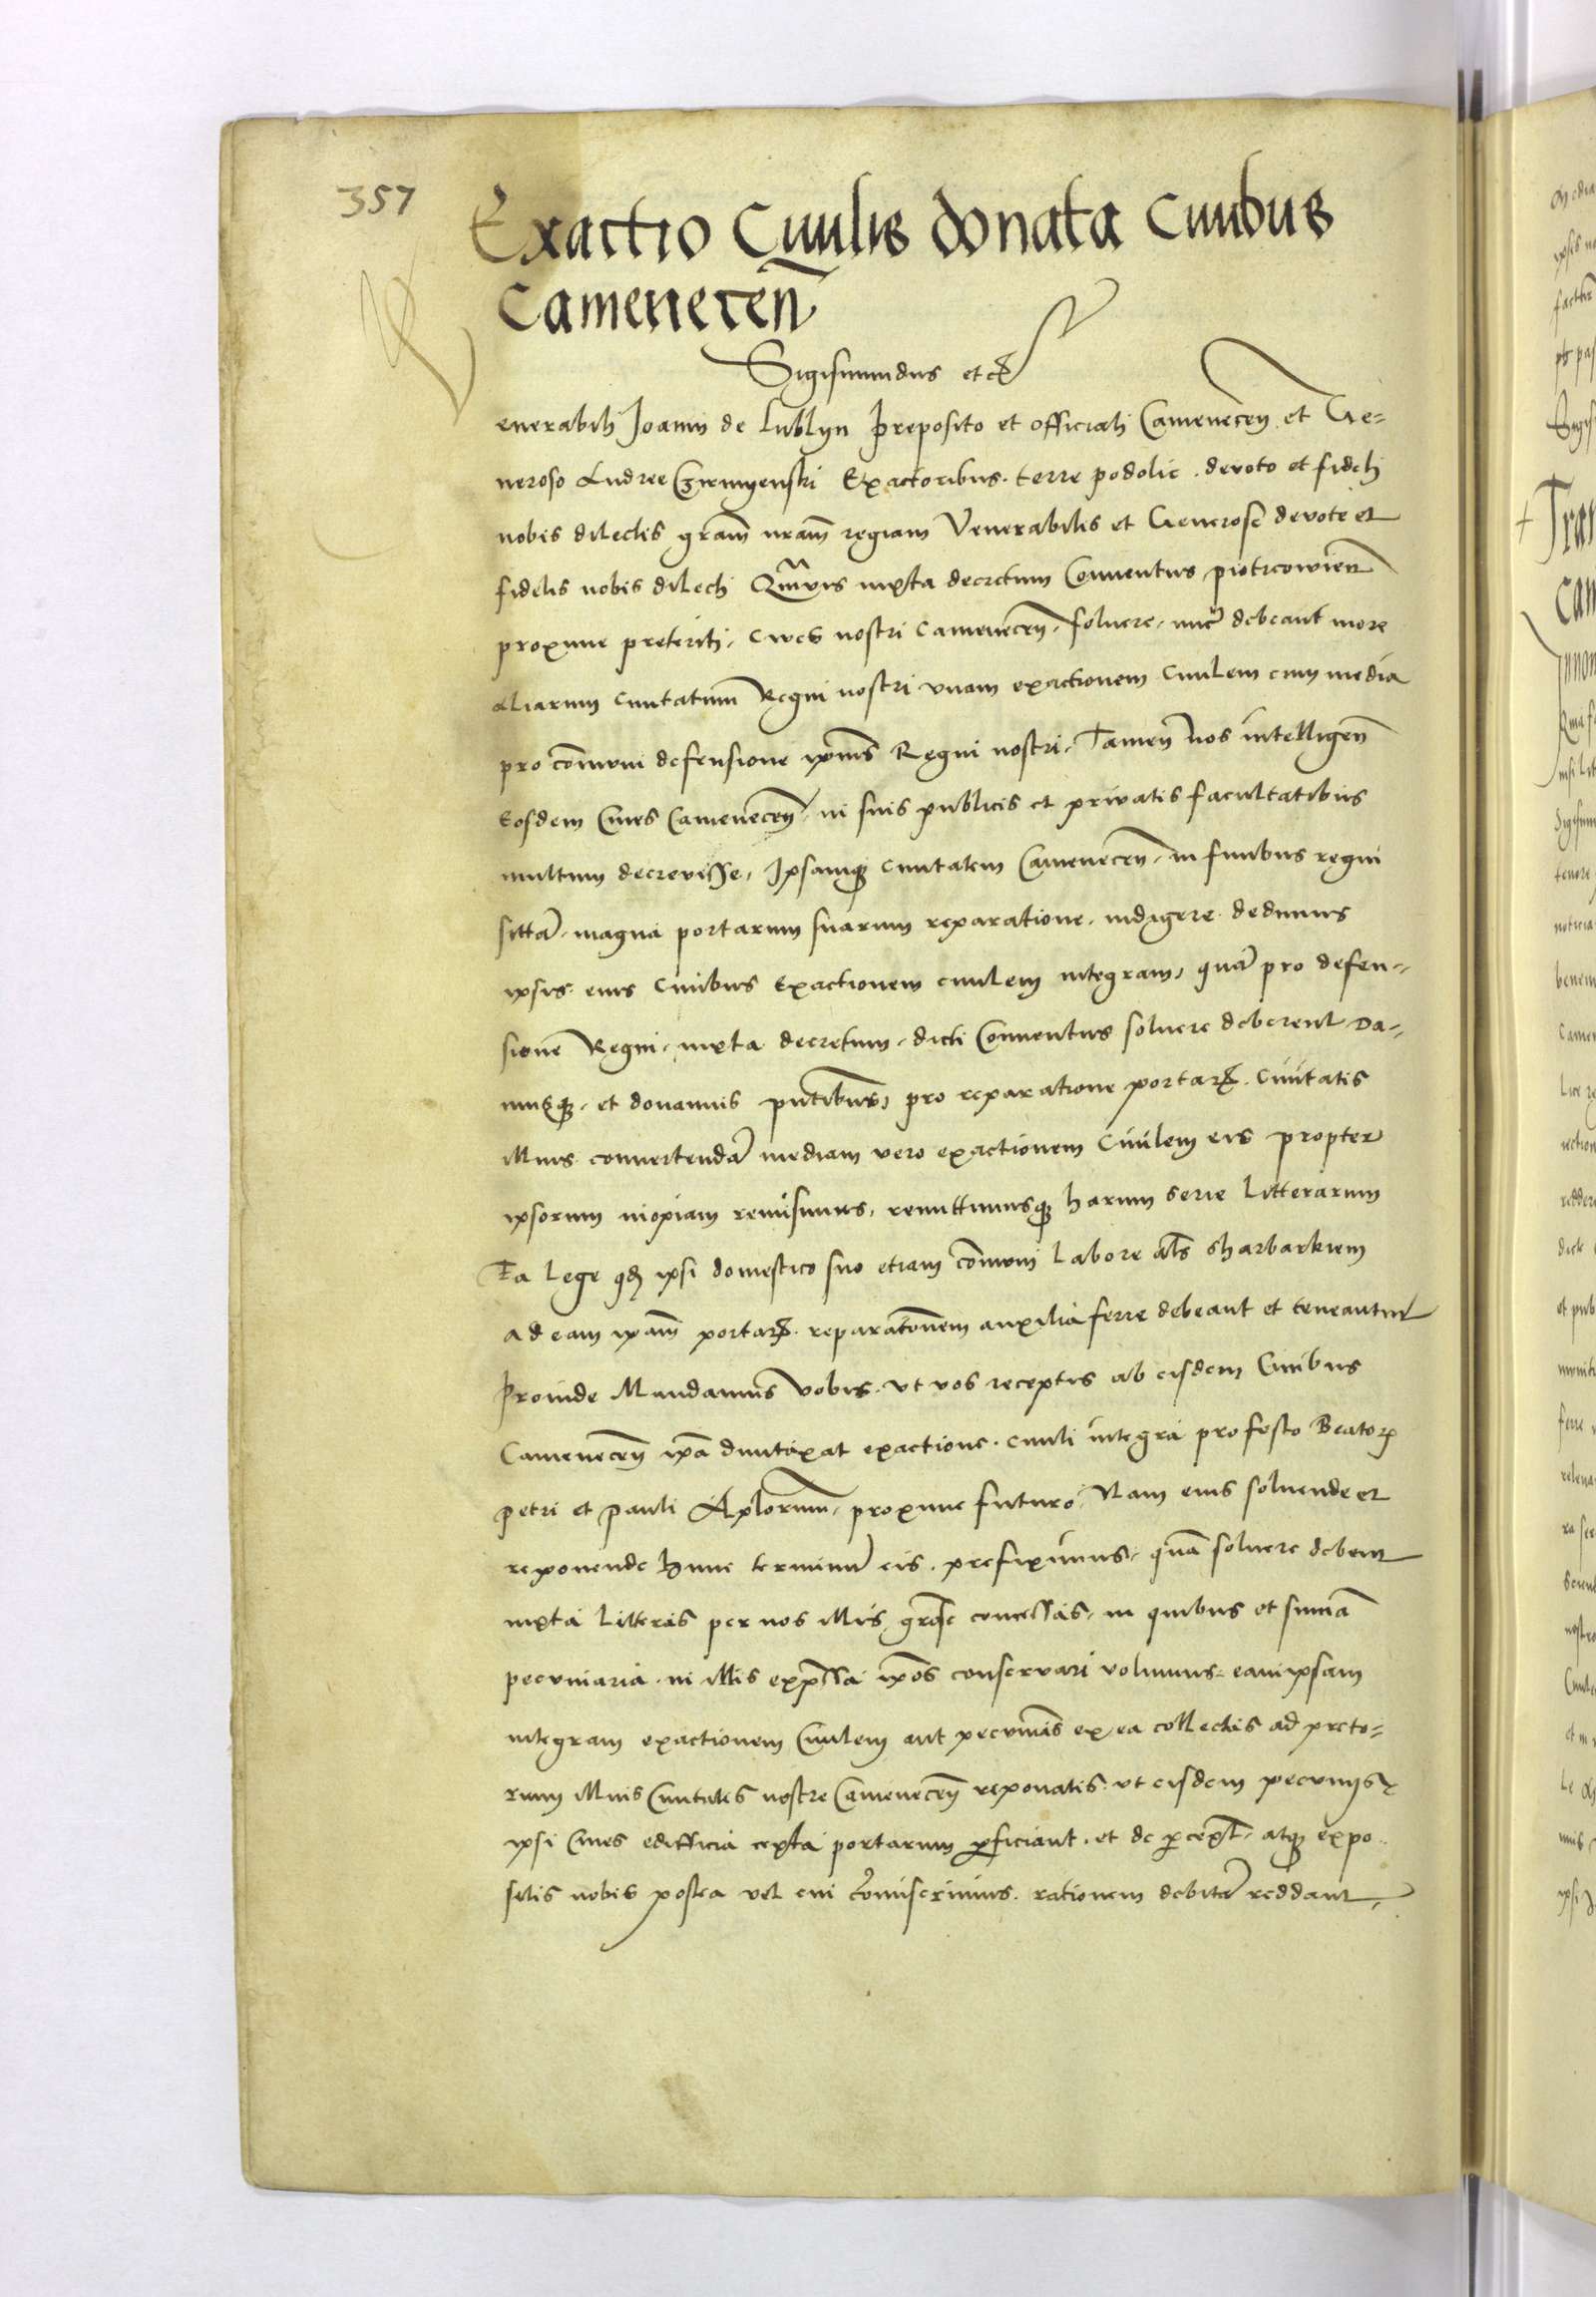 357
Exactio Ciuilis donata Ciuibus
Camenecen̄
Sigismundus etc̄
enerabili Joanni de Lublyn Preposito et officiali Camenecen̄ et Ge-
neroso Andree Czyemyenski Exactoribus terre podolie devoto et fideli
nobis dilectis grām nrām regiam Venerabilis et Generose devote et
fidelis nobis dilecti Qmvis iuxta decretum Conuentus piotrcowien̄
proxime preteriti, ciues nostri Camenecen̄ soluere nūc debeant more
aliarum ciuitatum Regni nostri vnam exactionem Ciuilem cum media
pro cōmuni defensione ipiūs Regni nostri. Tamen Nos intelligen̄
Eosdem Ciues Camenecen̄ in suis publicis et privatis facultatibus
multum decrevisse, Ipsamq ciuitatem Camenecen̄ in finibus regni
sittā magna portarum suarum reparatione indigere dedimus
ipsis eius Ciuibus Exactionem ciuilem integram, quā pro defen-
sione Regni iuxta decretum dicti Conuentus soluere deberent Da-
musq et donamus pn̄tibus, pro reparatione portarꝝ Ciuitatis
illius conuertendā mediam vero exactionem Ciuilem eis propter
ipsorum inopiam remisimus, remittimusq harum serie litterarum
Ea lege qđ ipsi domestico suo etiam cōmuni labore als̄ sharbarkiem
ad eam ipām portarꝝ reparatōnem auxilia ferre debeant et teneantur
Proinde Mandamus Vobis vt vos receptis ab eisdem Ciuibus
Camenecen̄ ipā duntaxat exactione ciuili integra pro festo Beatoꝝ
petri et pauli Aplorum̄ proxime futuro Nam eius soluende et
reponende hunc terminū eis prefiximus, quā soluere debent
iuxta litteras per nos illis grōse concessas, in quibus et summā
pecuniaria in illis expressa ipōs conservari volumus eam ipsam
integram exactionem Ciuilem aut pecunias ex ea collectas ad preto-
rium illius Ciuitatis nostre Camenecen̄ reponatis vt eisdem pecunijs
ipsi Ciues edifficia certa portarum ꝑficiant et de ꝑcept atq expo-
sitis nobis postea vel cui cōmiserimus rationem debitā reddant